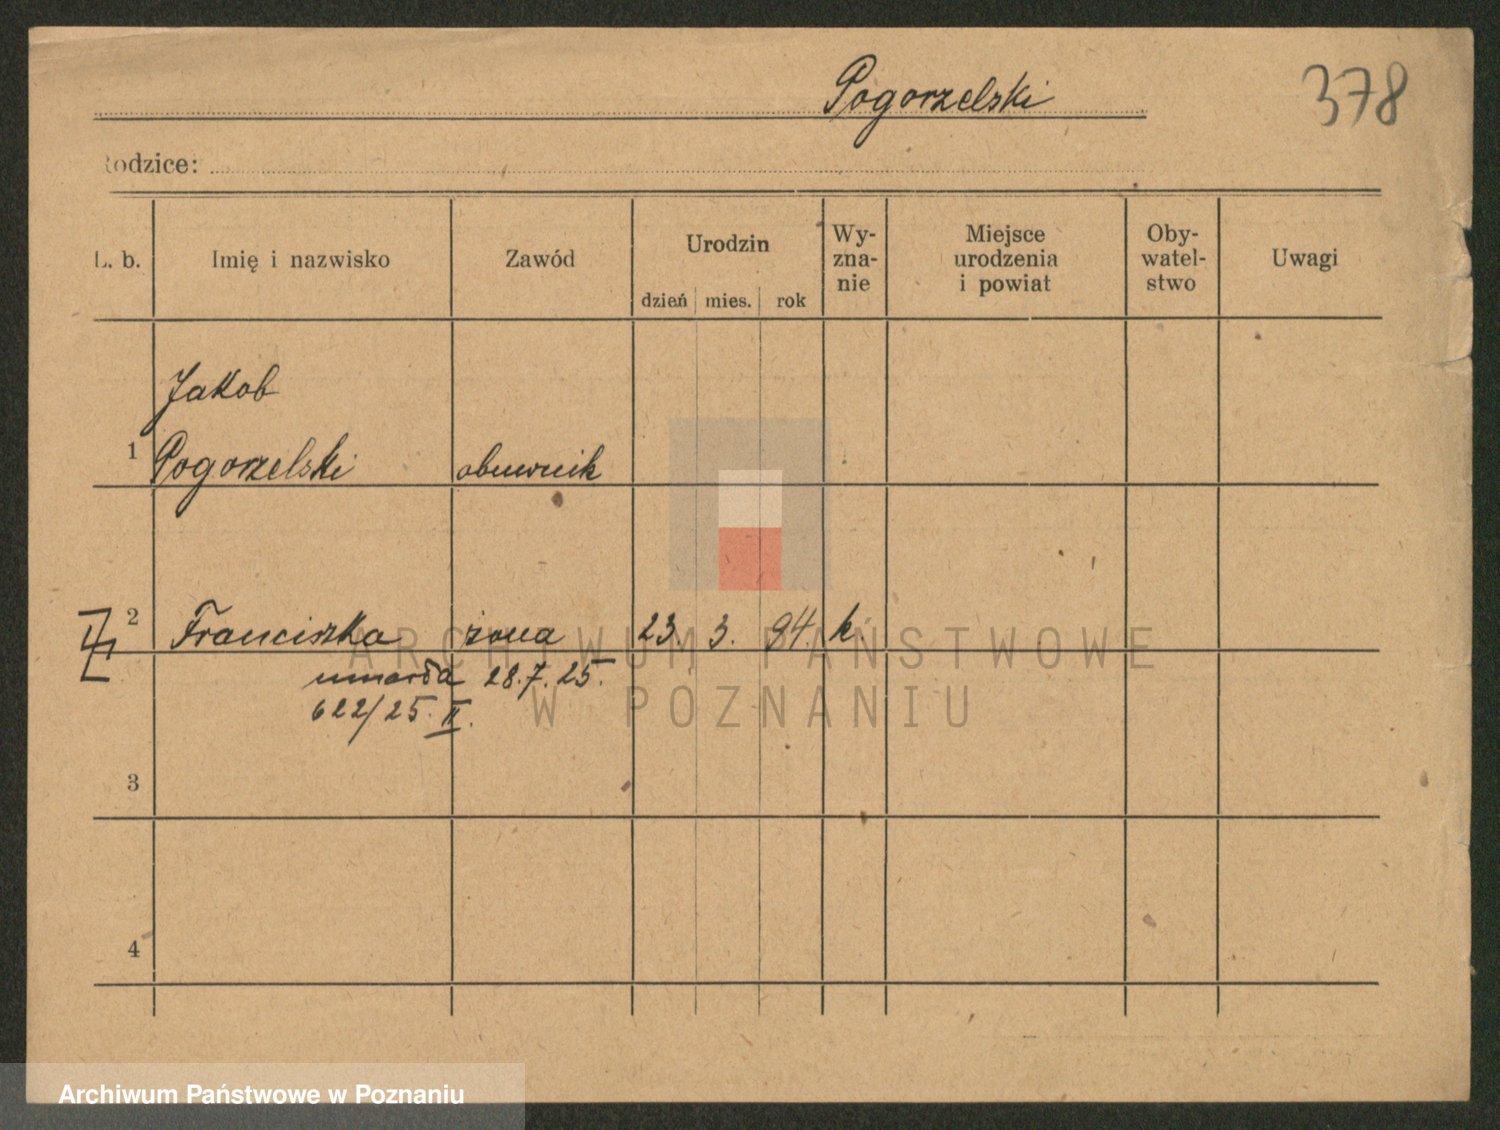 Pogorzelski
378
Rodzice:
L. b.
Imię i nazwisko
Zawód
Urodzin
dzień mies. rok
Wy-
zna-
nie
Miejsce
urodzenia
i powiat
Oby-
watel-
stwo
Uwagi
Jakob
1 Pogorzelski obuwnik
2 Franciszka żona 23. 3. 94. k.
umarła 28.7.25.
622/25 II.
3
4
ARCHIWUM PAŃSTWOWE
W POZNANIU
Archiwum Państwowe w Poznaniu